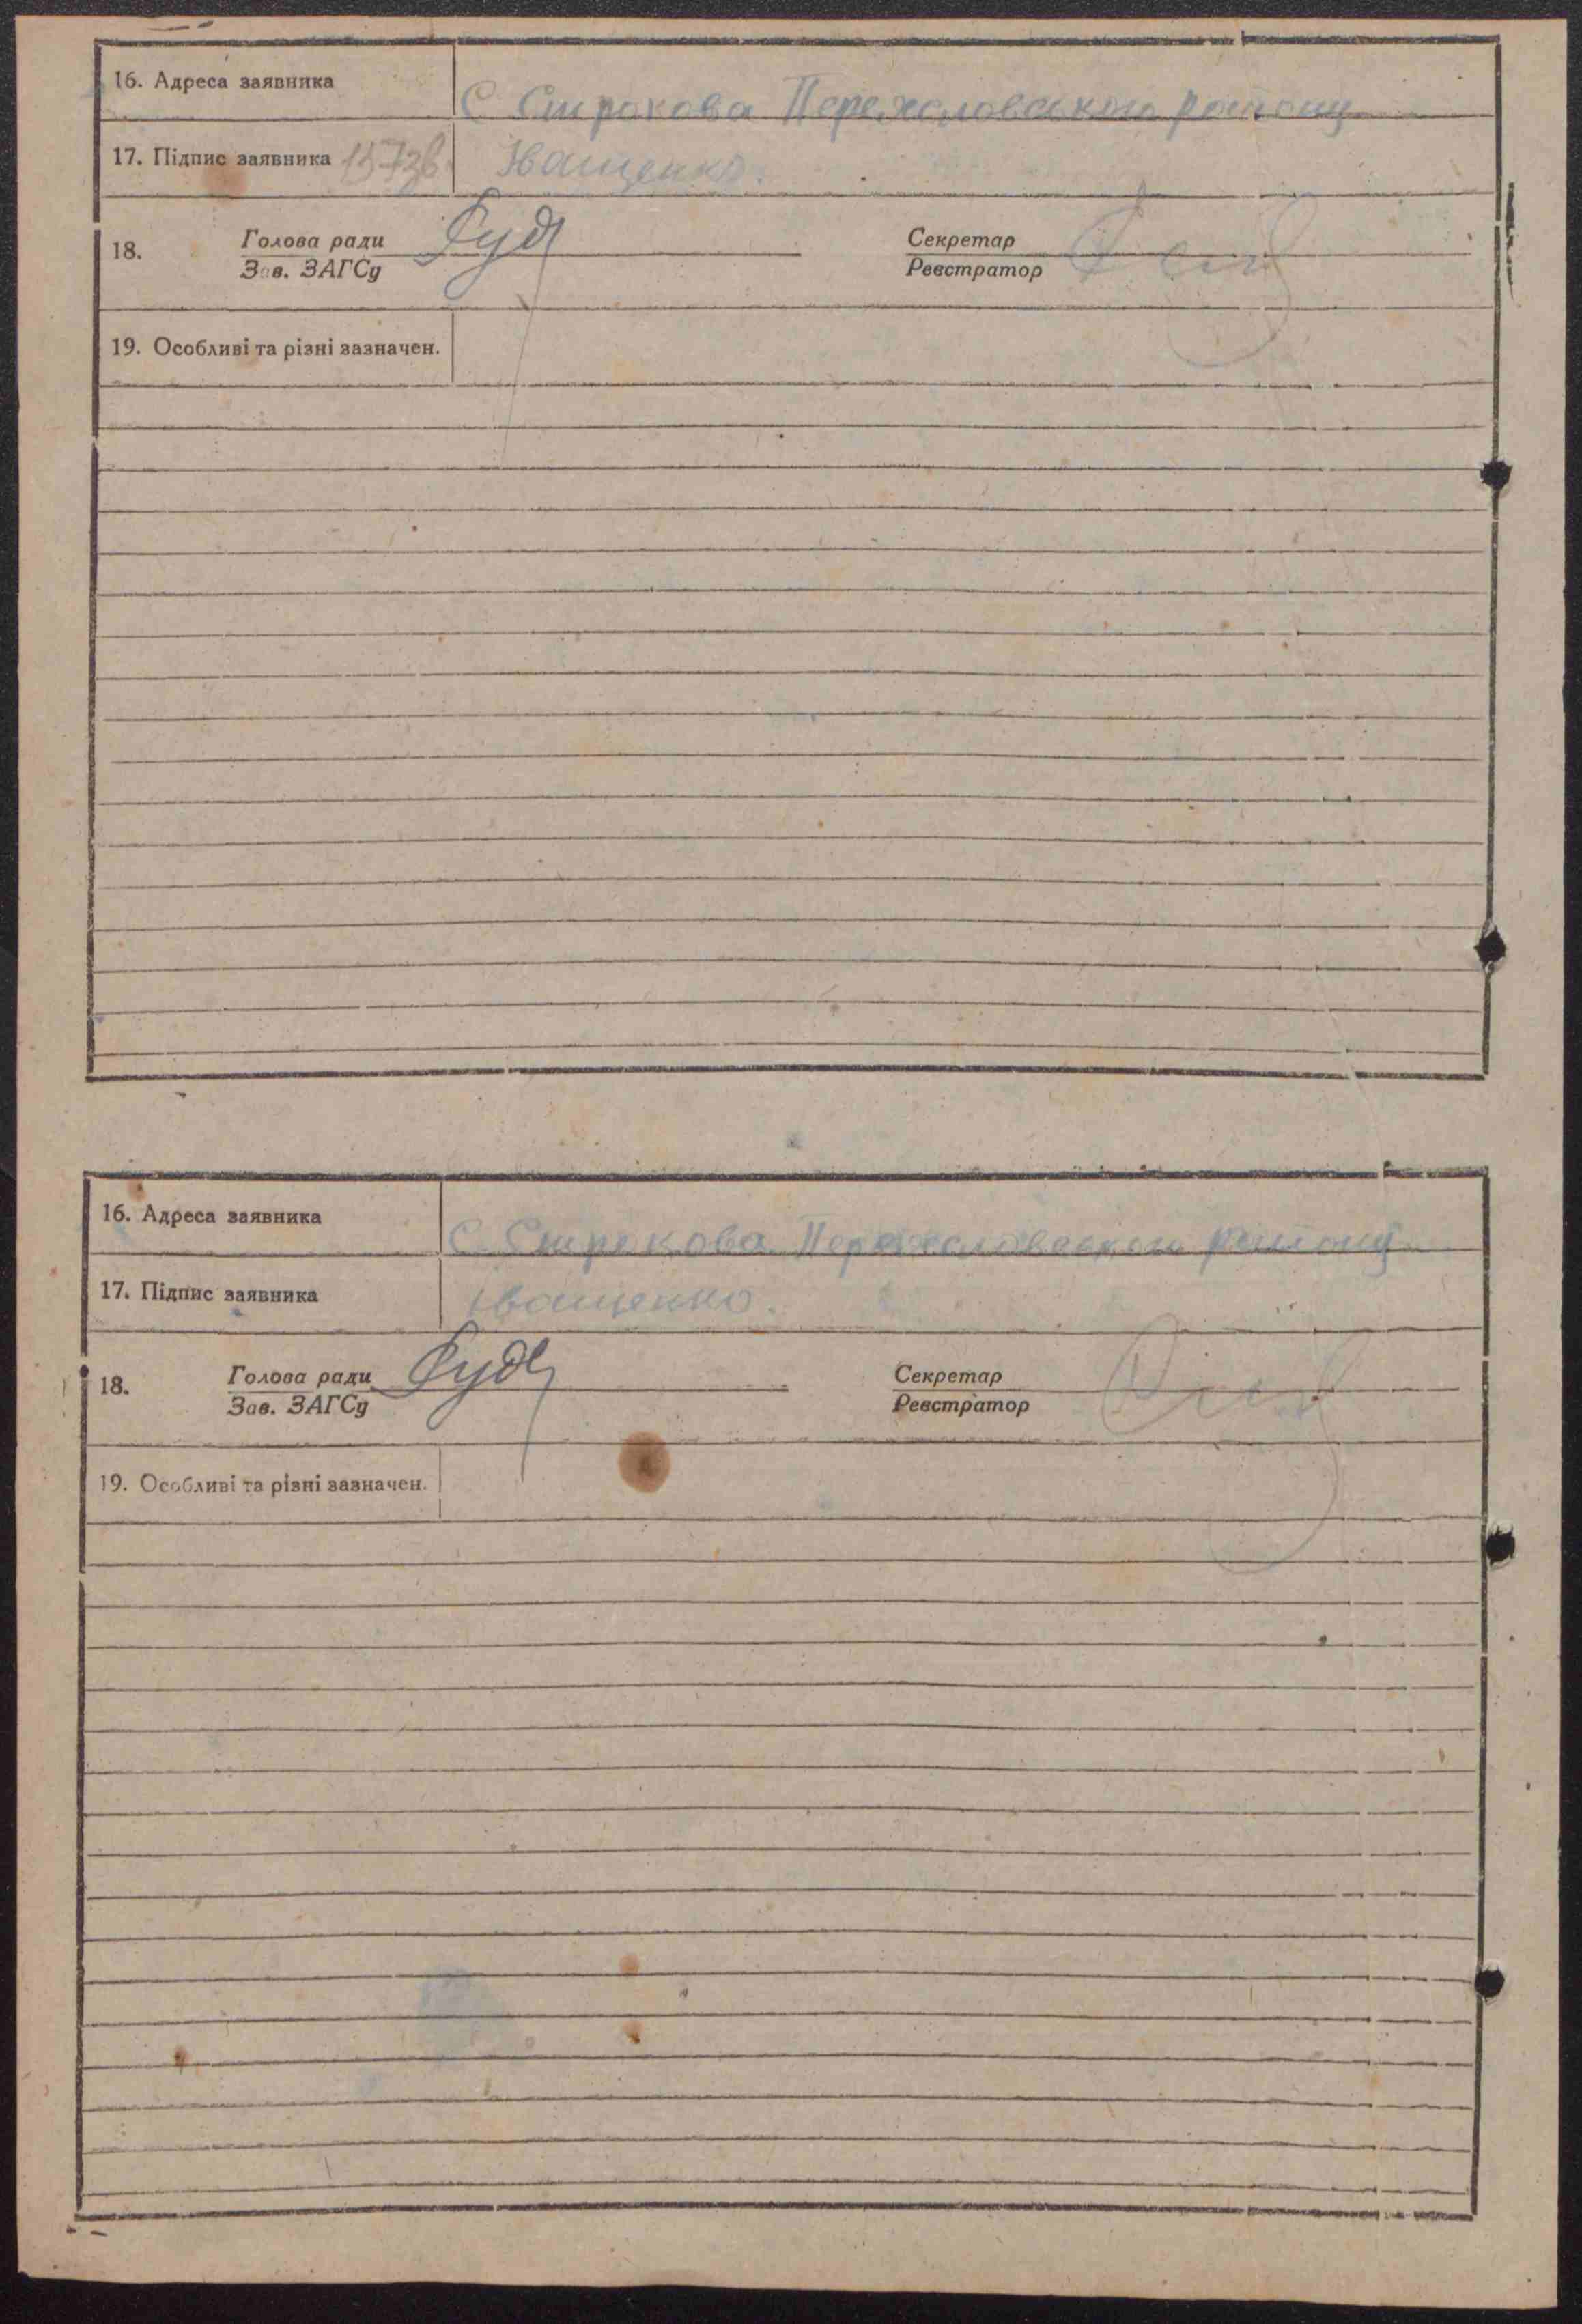 16. Адреса заявника
С Строкова Переяславського району
17. Підпис заявника 157зв Іващенко.
18. Голова ради Секретар
Зав. ЗАГСу Реєстратор
19. Особливі та різні зазначен.
16. Адреса заявника
С. Строкова Переяславського району
17. Підпис заявника Іващенко.
18. Голова ради Секретар
Зав. ЗАГСу Реєстратор
19. Особливі та різні зазначен.